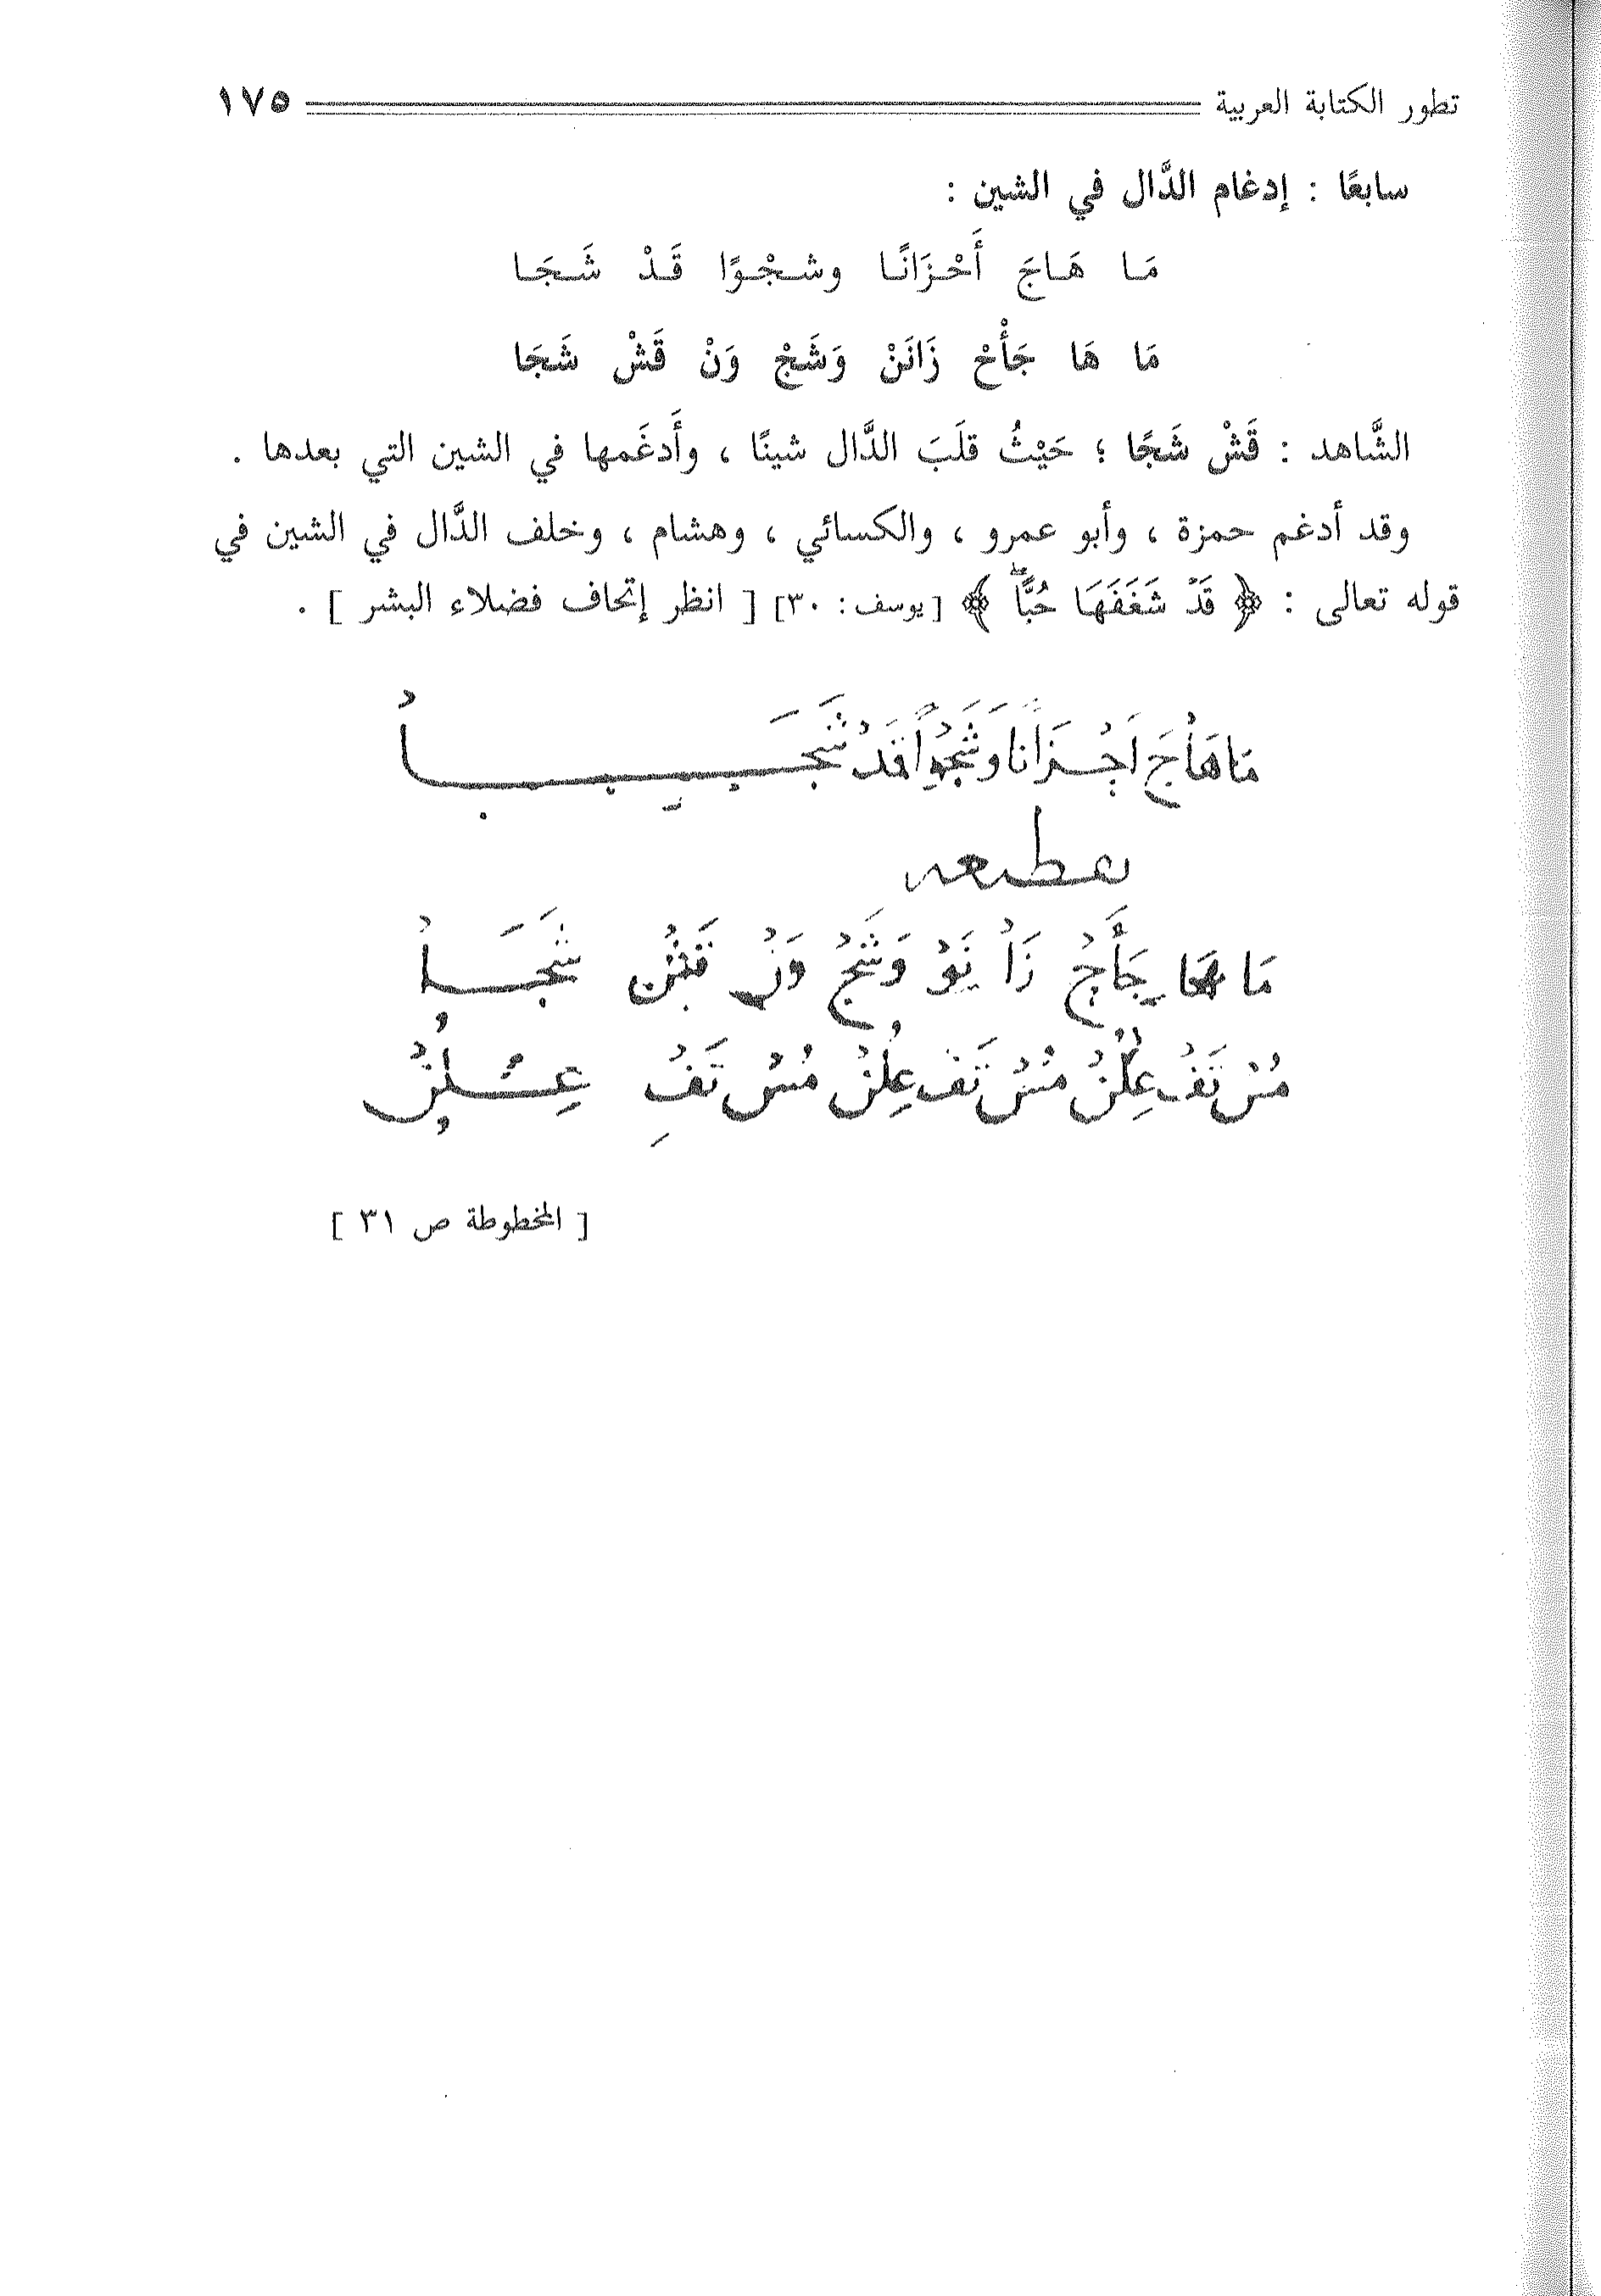 تطور الكتابة العربية ١٧٥
سابعًا : إدغام الدَّال في الشين :
مَـا هَـاجَ أَحْـزَانًـا وشـجْـوًا قَـدْ شَـجَـا
مَا هَا جَأْحْ زَانَنْ وَشَجْ وَنْ قَشْ شَجَا
الشَّاهد : قَشْ شَجًا ؛ حَيْثُ قلَبَ الدَّال شينًا ، وأَدغَمها في الشين التي بعدها .
وقد أدغم حمزة ، وأبو عمرو ، والكسائي ، وهشام ، وخلف الدَّال في الشين في
قوله تعالى : ﴿ قَدْ شَغَفَهَا حُبًّاۖ ﴾ [يوسف: ٣٠] [ انظر إتحاف فضلاء البشر ] .
مَا هَاجَ اَحْزَانا وَشَجْواً قَدْ شَجَـــا
مَا هَا جَأَحْ زَاْ وَشَجْ وَنْ شَجَـا
مُسْ تَفْ عِلُنْ مُسْ تَفْ عِلُنْ مُسْ تَفْ عِـلُنْ
[ المخطوطة ص ٣١ ]